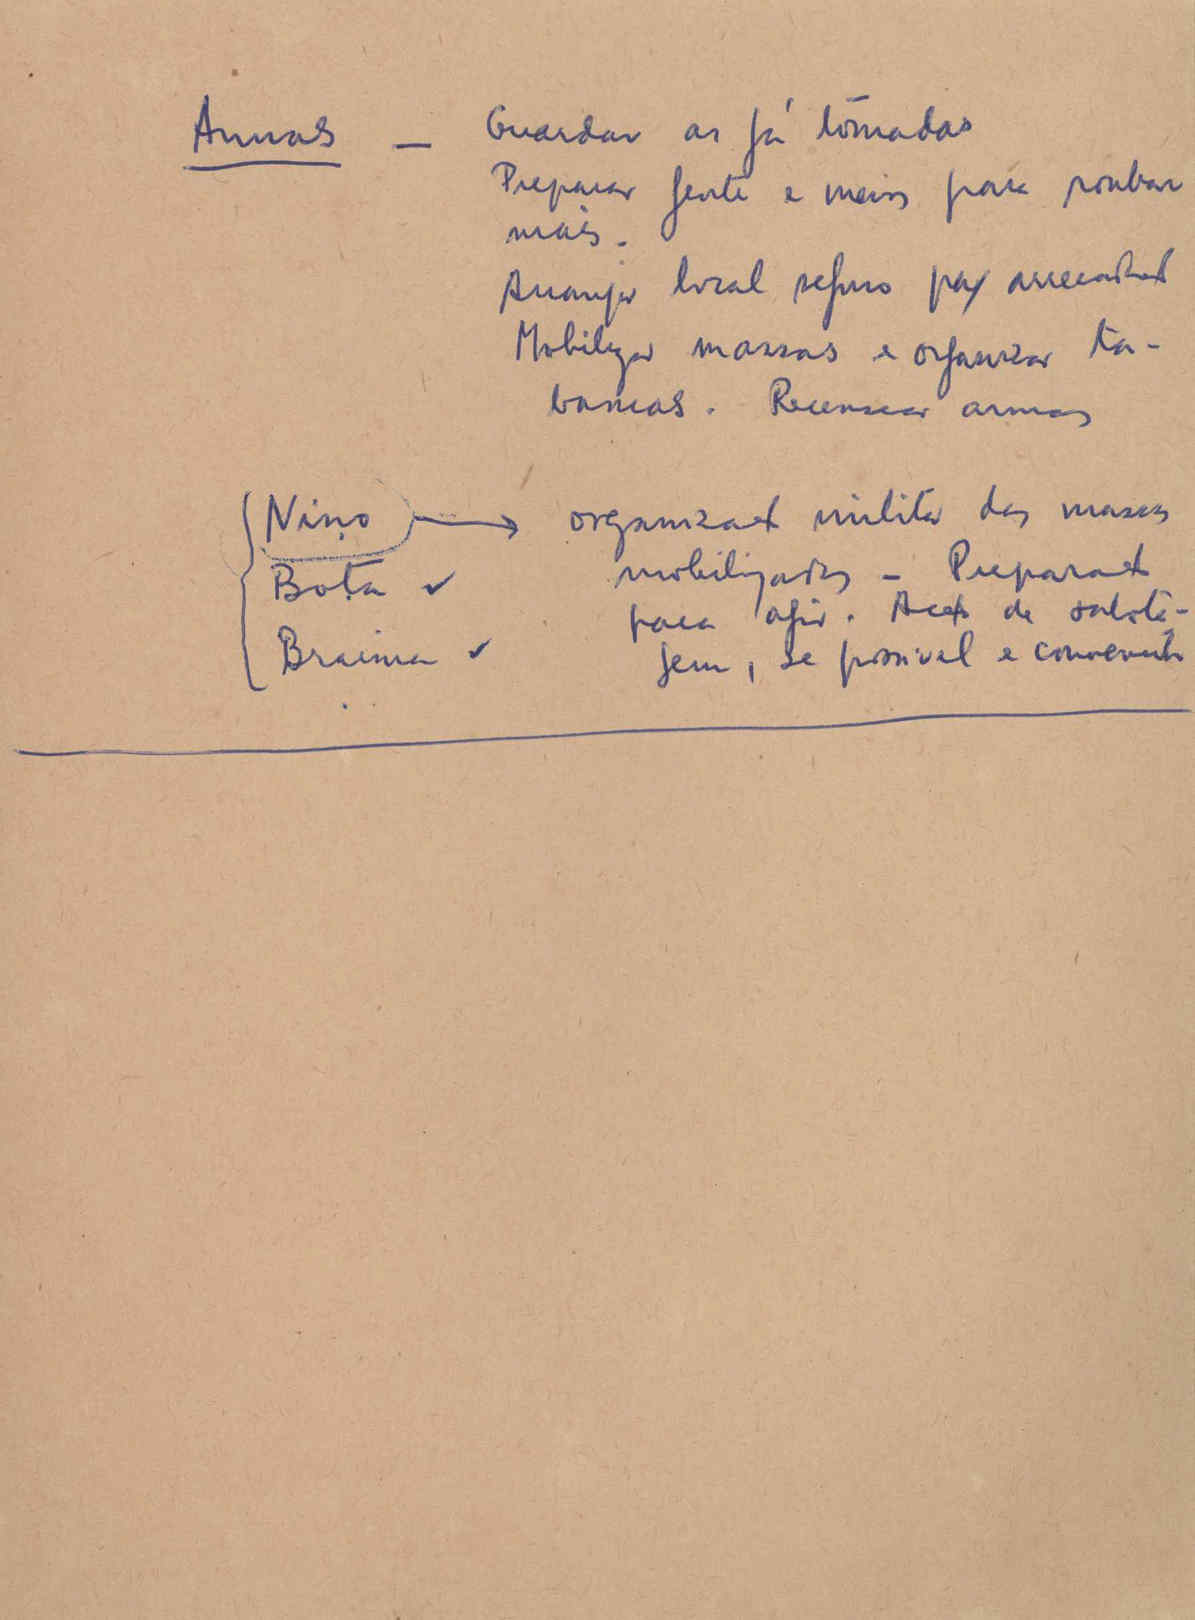 Armas — Guardar as já tômadas
Preparar gente e meios para roubar
mais.
Arranjar local seguro
Mobilizar massas e organizar ta-
bancas. Recensear armas
Nino → militar das massas
Bota ✓ mobilizadas —
Braima ✓ para agir. de sabota-
gem, se possível e conveniente